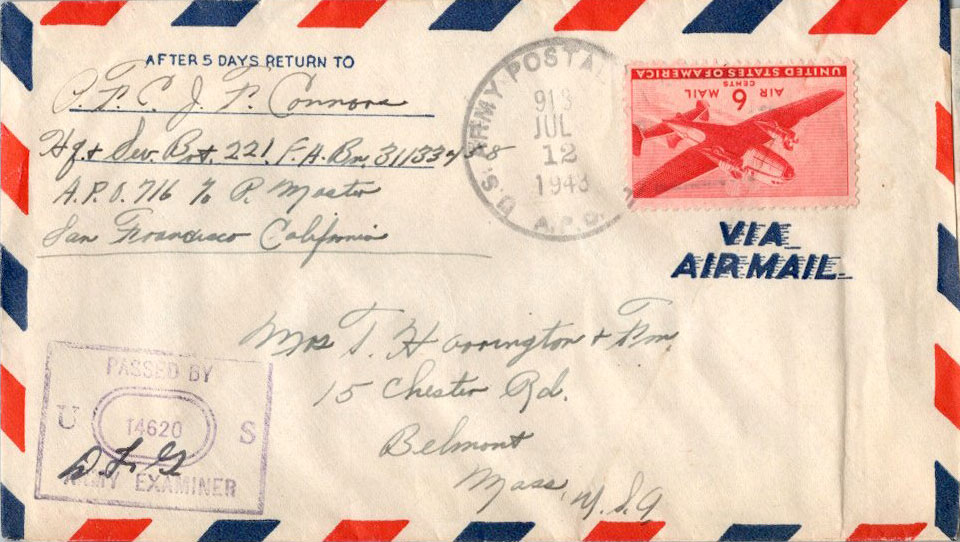 AFTER 5 DAYS RETURN TO
P.F.C. J. F. Connors
Hq. + Ser. Bat. 221 F. A. Bn. 31133438
A.P.O. 716 % P. Master
San Francisco California
U.S. ARMY POSTAL
A.P.O.
913
JUL
12
1943
UNITED STATES OF AMERICA
6 CENTS
AIR MAIL
VIA
AIR MAIL
Mrs T. Harrington + Fam
15 Chester Rd.
Belmont
Mass, U.S.A
PASSED BY
U T4620 S
D F G
ARMY EXAMINER